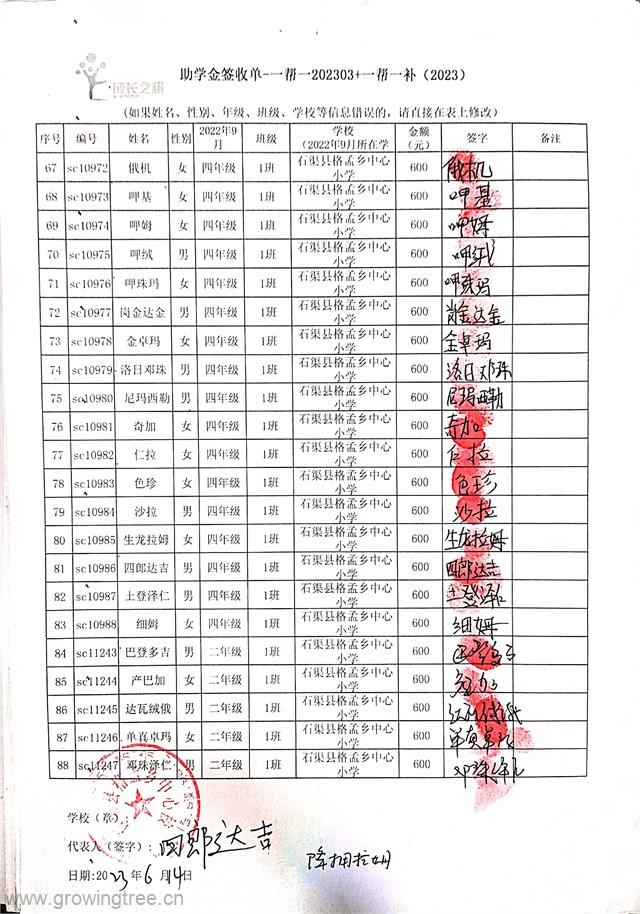 成长之树
助学金签收单-一帮一202303+一帮一补（2023）
(如果姓名、性别、年级、班级、学校等信息错误的，请直接在表上修改)
序号 编号 姓名 性别 2022年9月 班级 学校（2022年9月所在学 金额（元） 签字 备注
67 sc10972 俄机 女 四年级 1班 石渠县格孟乡中心小学 600 俄机
68 sc10973 呷基 女 四年级 1班 石渠县格孟乡中心小学 600 呷基
69 sc10974 呷姆 女 四年级 1班 石渠县格孟乡中心小学 600 呷姆
70 sc10975 呷绒 男 四年级 1班 石渠县格孟乡中心小学 600 呷绒
71 sc10976 呷珠玛 女 四年级 1班 石渠县格孟乡中心小学 600 呷珠玛
72 sc10977 岗金达金 男 四年级 1班 石渠县格孟乡中心小学 600 岗金达金
73 sc10978 金卓玛 女 四年级 1班 石渠县格孟乡中心小学 600 金卓玛
74 sc10979 洛日邓珠 男 四年级 1班 石渠县格孟乡中心小学 600 洛日邓珠
75 sc10980 尼玛西勒 男 四年级 1班 石渠县格孟乡中心小学 600 尼玛西勒
76 sc10981 奇加 女 四年级 1班 石渠县格孟乡中心小学 600 奇加
77 sc10982 仁拉 女 四年级 1班 石渠县格孟乡中心小学 600 仁拉
78 sc10983 色珍 女 四年级 1班 石渠县格孟乡中心小学 600 色珍
79 sc10984 沙拉 男 四年级 1班 石渠县格孟乡中心小学 600 沙拉
80 sc10985 生龙拉姆 女 四年级 1班 石渠县格孟乡中心小学 600 生龙拉姆
81 sc10986 四郎达吉 男 四年级 1班 石渠县格孟乡中心小学 600 四郎达吉
82 sc10987 土登泽仁 男 四年级 1班 石渠县格孟乡中心小学 600 土登泽仁
83 sc10988 细姆 女 四年级 1班 石渠县格孟乡中心小学 600 细姆
84 sc11243 巴登多吉 男 二年级 1班 石渠县格孟乡中心小学 600
85 sc11244 产巴加 女 二年级 1班 石渠县格孟乡中心小学 600
86 sc11245 达瓦绒俄 男 二年级 1班 石渠县格孟乡中心小学 600
87 sc11246 单真卓玛 女 二年级 1班 石渠县格孟乡中心小学 600 单真卓玛
88 sc11247 邓珠泽仁 男 二年级 1班 石渠县格孟乡中心小学 600 邓珠泽仁
学校（章）：
代表人（签字）：四郎达吉
日期:2023年6月14日
www.growingtree.cn